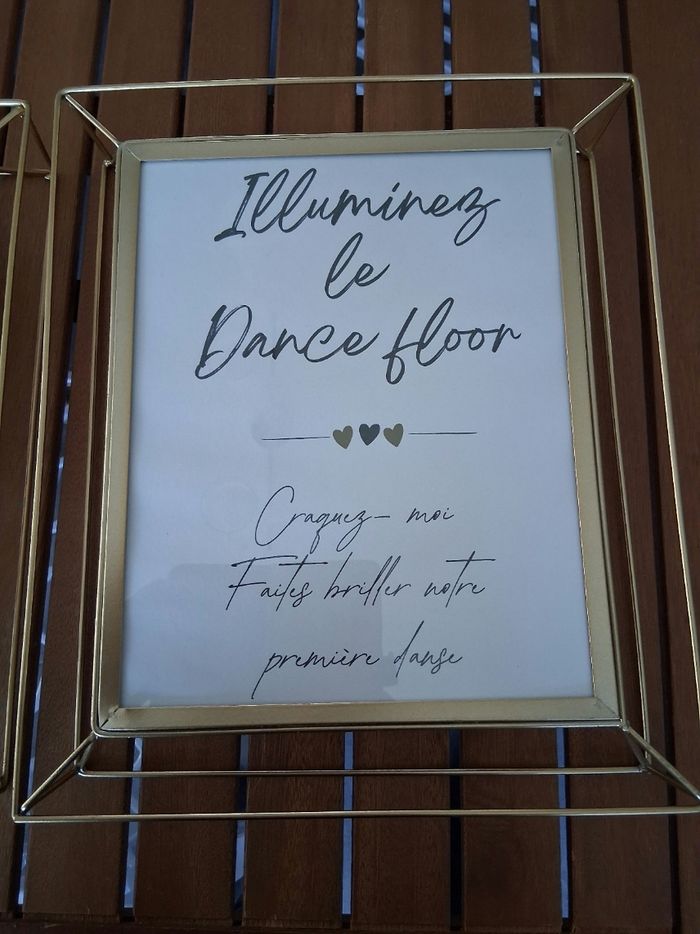 Illuminez
le
Dance floor
Craquez- moi
Faites briller notre
première danse